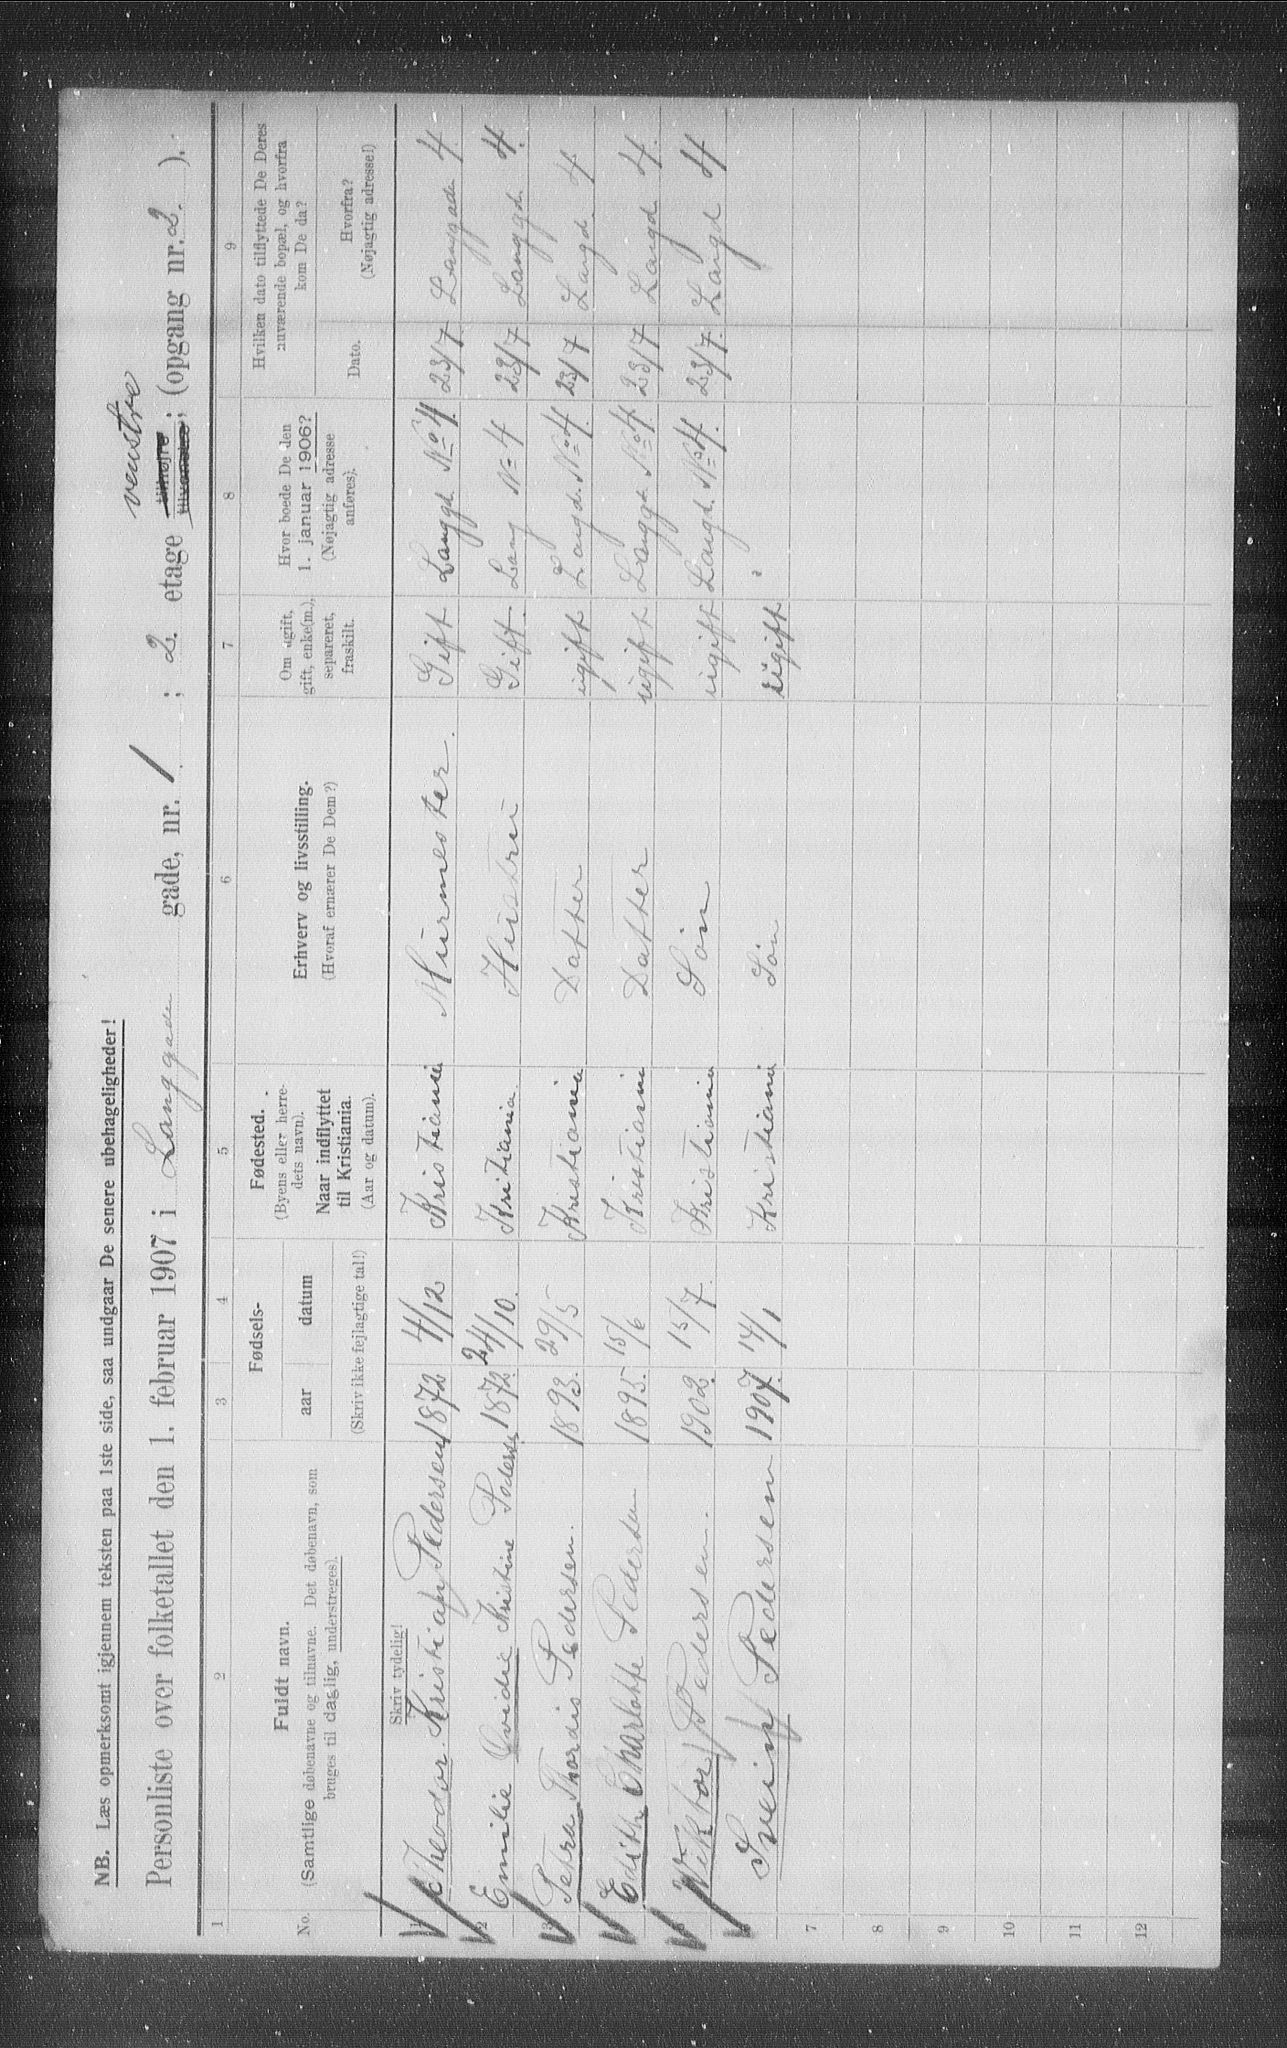 NB. Læs opmerksomt igjennem teksten paa 1ste side, saa undgaar De senere ubehageligheder!
Personliste over folketallet den 1. februar 1907 i Langgade gade, nr. 1 ; 2. etage tilhøjre tilvenstre venstre ; (opgang nr. 2. ).
1 2 3 4 5 6 7 8 9
No. Fuldt navn. (Samtlige døbenavne og tilnavne. Det døbenavn, som bruges til daglig, understreges).
Fødsels-
aar datum
(Skriv ikke fejlagtige tal!)
Fødested. (Byens eller herredets navn). Naar indflyttet til Kristiania. (Aar og datum).
Erhverv og livsstilling. (Hvoraf ernærer De Dem?)
Om ugift, gift, enke(m.), separeret, fraskilt.
Hvor boede De den 1. januar 1906? (Nøjagtig adresse anføres).
Hvilken dato tilflyttede De Deres nuværende bopæl, og hvorfra kom De da?
Dato. Hvorfra? (Nøjagtig adresse!)
Skriv tydelig!
1 Theodor Kristian Pedersen 1872 4/12 Kristiania Murmester. Gift Langgd. No 4. 23/7 Langgade 4.
2 Emilie Ovidie Kristine Pederse 1872 24/10. Kritiania. Hustru Gift. Lang No 4 23/7 Langgd. 4.
3 Petra Thordis Pedersen. 1893. 29/5 Kristiania Datter ugift Langd. No 4. 23/7 Langd. 4
4 Edith Charlotte Pedersen 1895. 15/6 Kristiania Datter ugift Langgd. No 4. 23/7 Langd 4.
5 Viktor Pedersen. 1902. 15/7. Kristiania Søn ugift Langd. No 4. 23/7. Langd 4
6 Svein Pedersen 1907. 14/1 Kristiania Søn ugift
7
8
9
10
11
12